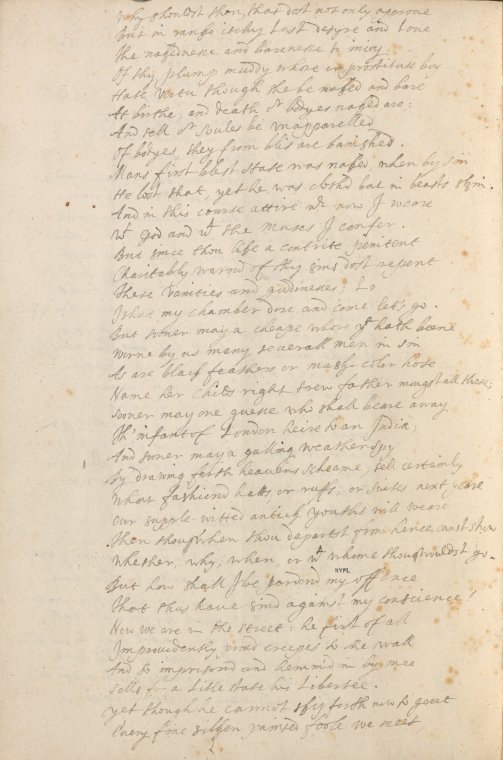 Why shouldst thou, that dost not only approve
But in ranke itchy Lust desyre and Loue
The nakednesse and barenesse to inioy
Of thy plump muddy whore or prostitute boy
Hate vertu though she be naked and bare
At birthe, and death or bodyes naked are:
And till or Soules be vnapparelled
Of bodyes, they from blis are banished.
Mans first blest state was naked, when by sin
He lost that yet he was clothd but in beasts skin.
And in this course attire wch now I weare
wth god and wth the Muses I confer.
But since thou like a contrite penitent
Charitably warnd of thy sins dost repent
These vanities and gidinesses; Lo
I shut my chamber dore and come let's go.
But sooner may a cheape whore yt hath beene
Worne by as many seuerall men in sin
As are black feathers or musk-coler hose
Name her Childs right trew father mongst all those;
Sooner may one guesse who shall beare away
Th' infant of London heire to an India;
And sooner may a guling weatherspy
By drawing forth heauens Scheame tell certainly
What fashiond hatts, or ruffs, or suites next yeare
Our supple witted antick youths will weare
Then thou when thou departst from hence canst show
Whether, why, when, or wth whome thou wouldst go.
But how shall I be pardond my offence
That thus haue sind against my conscience!
NYPL
Now we are in the street: he first of all
Improuidently proud creepes to the wall
And so imprisond and hemmd in by mee
Sells for a Litle state his Libertee.
yet though he cannot skip forth now to greet
Euery fine silken painted foole we meet